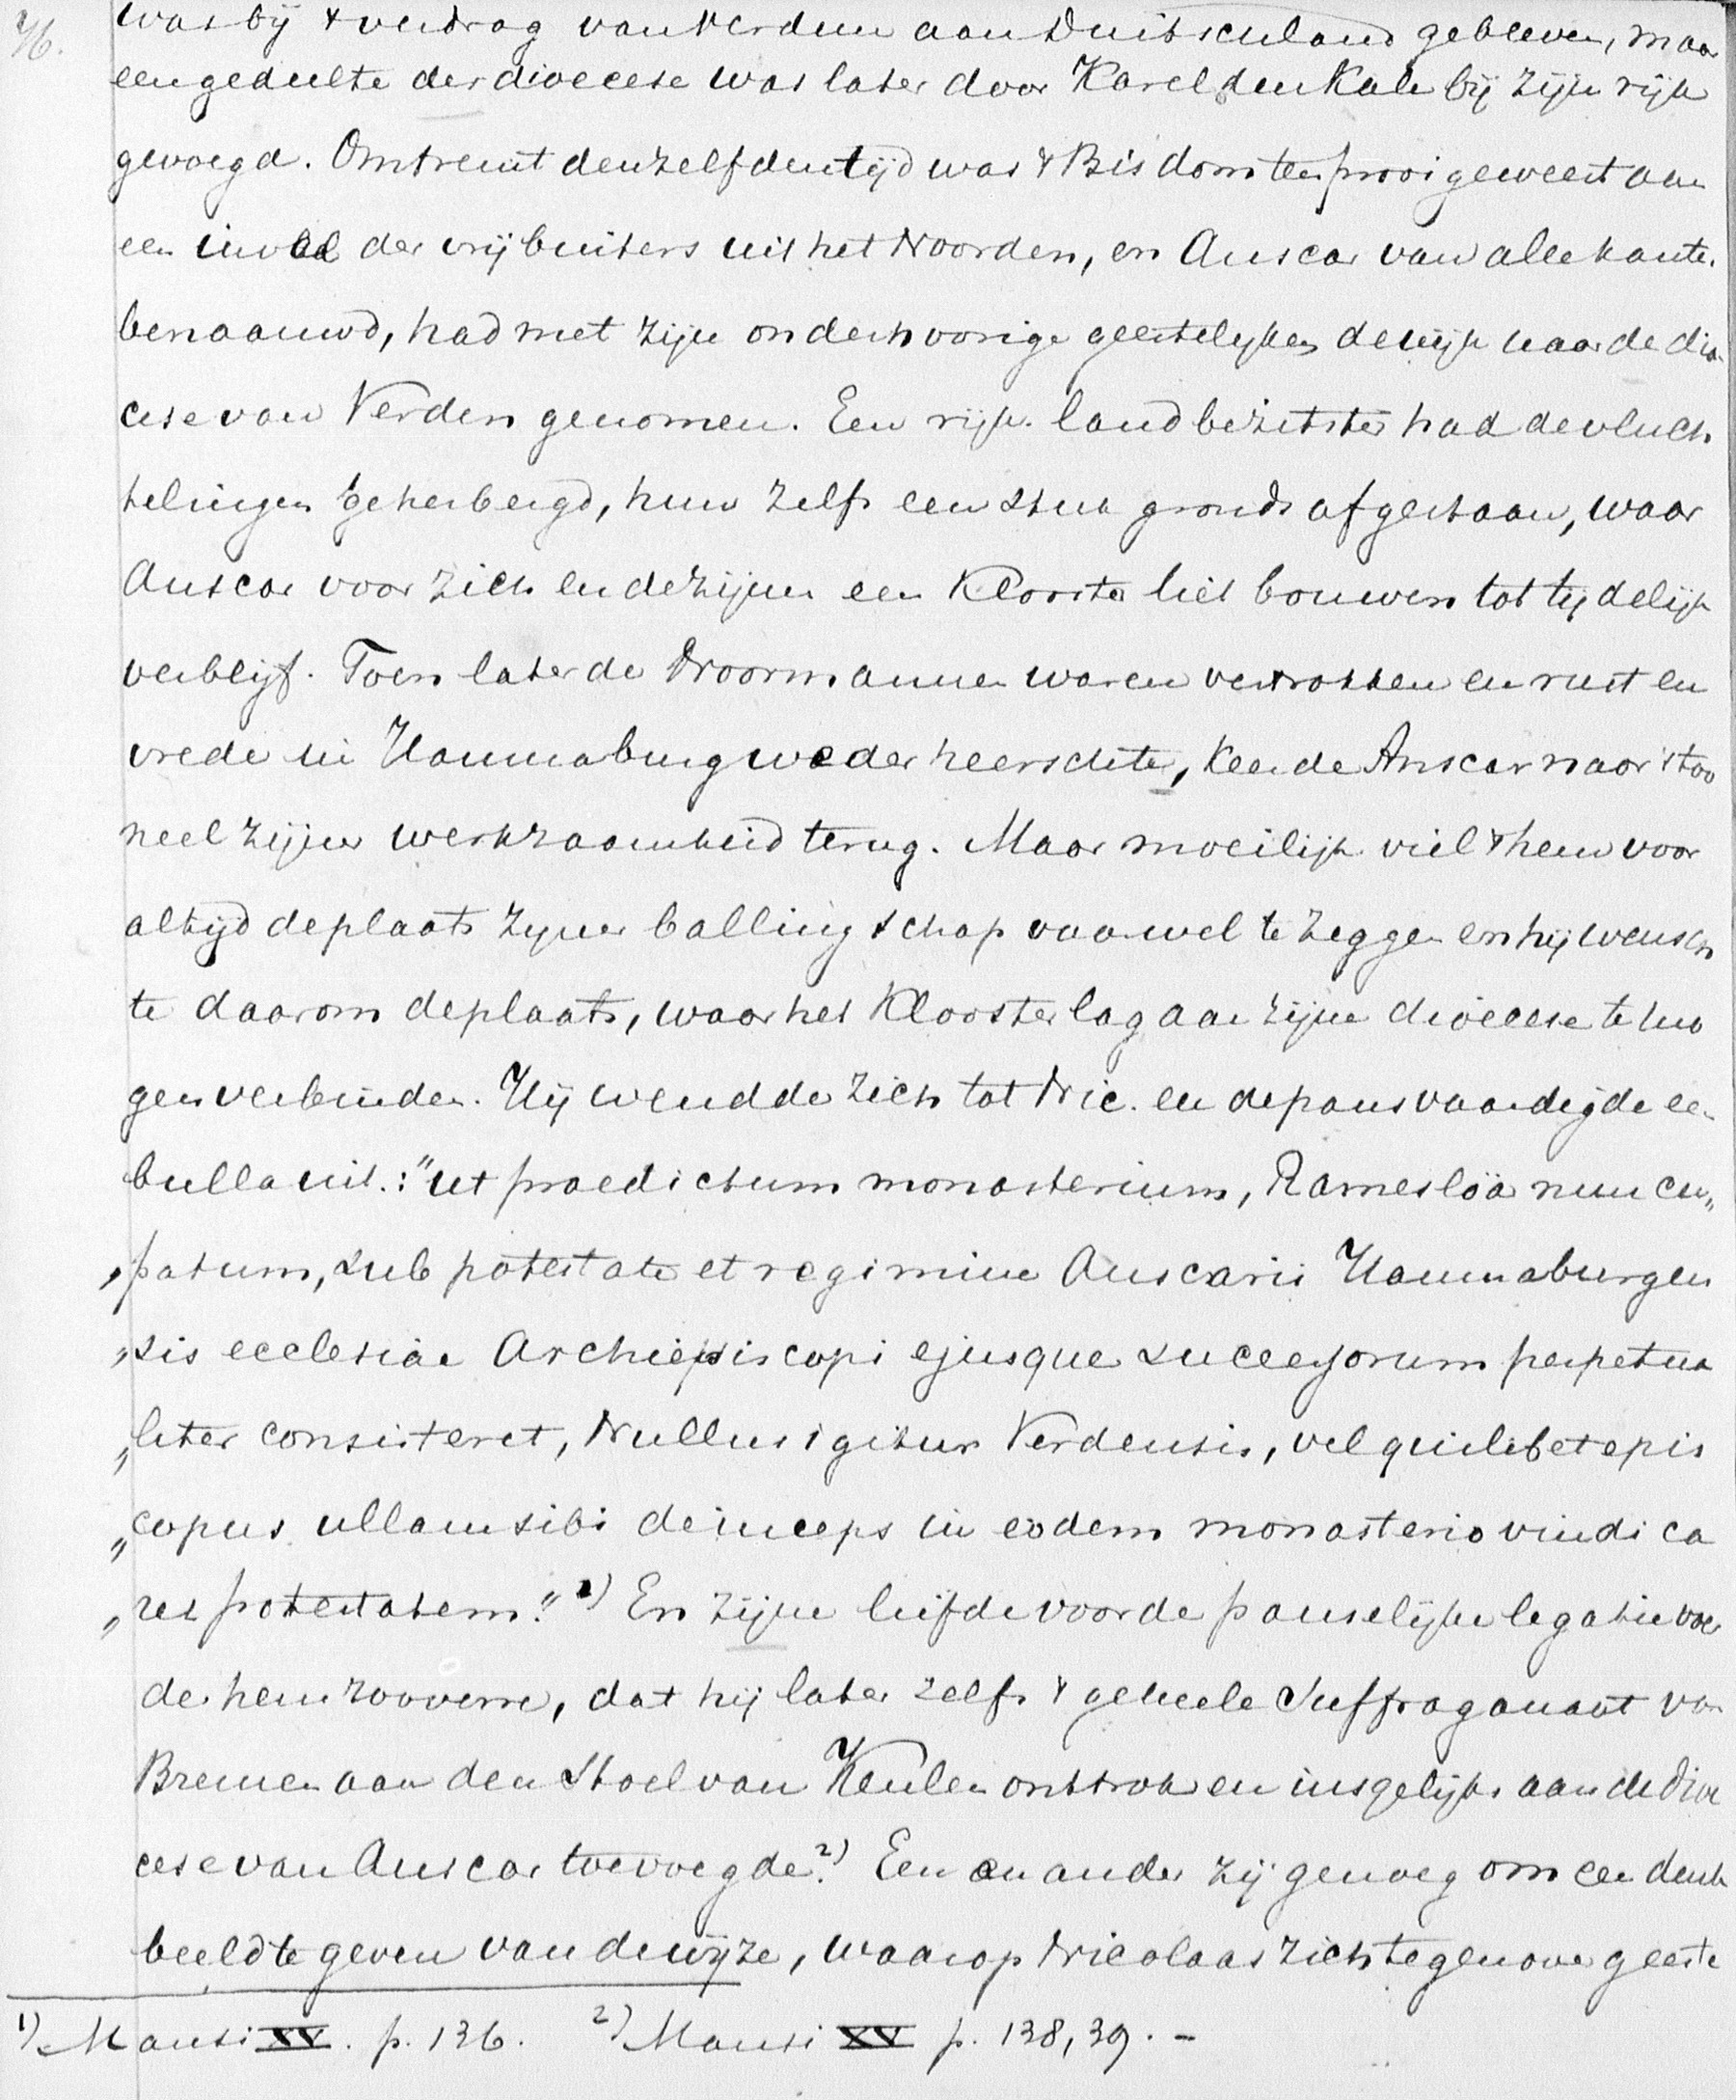 76.
was bij 't verdrag van Verdun aan Duitschland gebleven, maar
een gedeelte der dioecese was later door Karel den Kale bij zijn rijk
gevoegd. Omtrent denzelfden tijd was 't Bisdom ten prooi geweest aan
een inval der vrijbuiters uit het Noorden, en Anscar van alle kanten
benaauwd, had met zijn onderhoorige geestelijken de wijk naar de dioe
cese van Verden genomen. Een rijke landbezitster had de vluch
telingen geherbergd, hun zelfs een stuk gronds afgestaan, waar
Anscar voor zich en de zijnen een Klooster liet bouwen tot tijdelijk
verblijf. Toen later de Noormannen waren vertrokken en rust en
vrede in Hammaburg weder heerschte, keerde Anscar naar 't too
neel zijner werkzaamheid terug. Maar moeilijk viel 't hem voor
altijd de plaats zijner ballingschap vaarwel te zeggen en hij wensch
te daarom de plaats, waar het Klooster lag aan zijne dioecese te mo
gen verbinden. Hij wendde zich tot Nic. en de paus vaardigde een
bulla uit.: "ut praedictum monasterium, Rameslöa nuncu„
„patum, sub potestate et regimine Anscarii Hammaburgen
„sis ecclesiae Archiepiscopi ejusque successorum perpetua
„liter consisteret, Nullus igitur Verdensis, vel quilibet epis
„copus ullam sibi deinceps in eodem monasterio vindica
„ret potestatem." 1) En zijne liefde voor de panselijke legatie voer
de hem zooverre, dat hij later zelfs 't geheele Suffraganaat van
Bremen aan den Stoel van Keulen onttrok en insgelijks aan de dioe
cese van Anscar toevoegde. 2) Een en ander zij genoeg om een denk
beeld te geven van de wijze, waarop Nicolaas zich tegenover geeste
1) Mansi XV. p. 136. 2) Mansi XV p. 138, 39. -